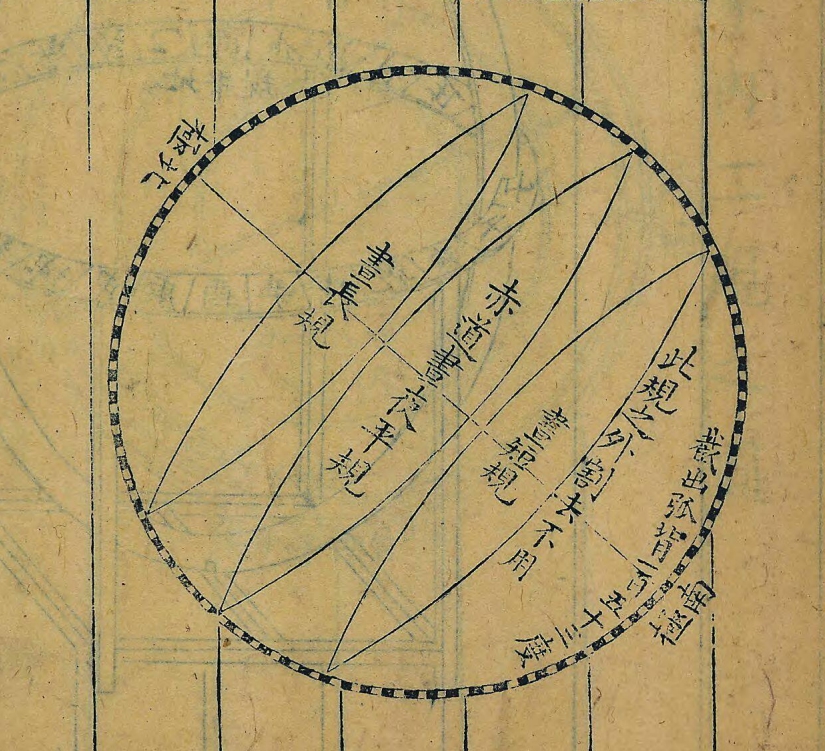 北極
晝長規
赤道晝夜平規
晝短規
此規之外割去不用
截出弧背一百五十三度
南極